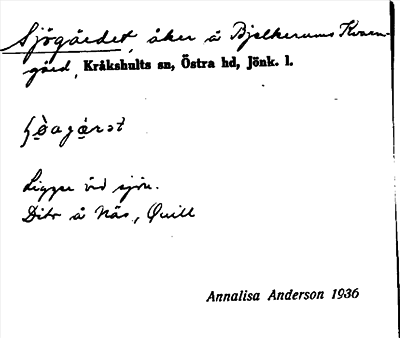 Sjögärdet, åker å Bjälkerums Kvarn-
gård, Kråkshults sn, Östra hd, Jönk. l.
Ligger vid sjön.
Dito å Näs, Quill
Annalisa Anderson 1936